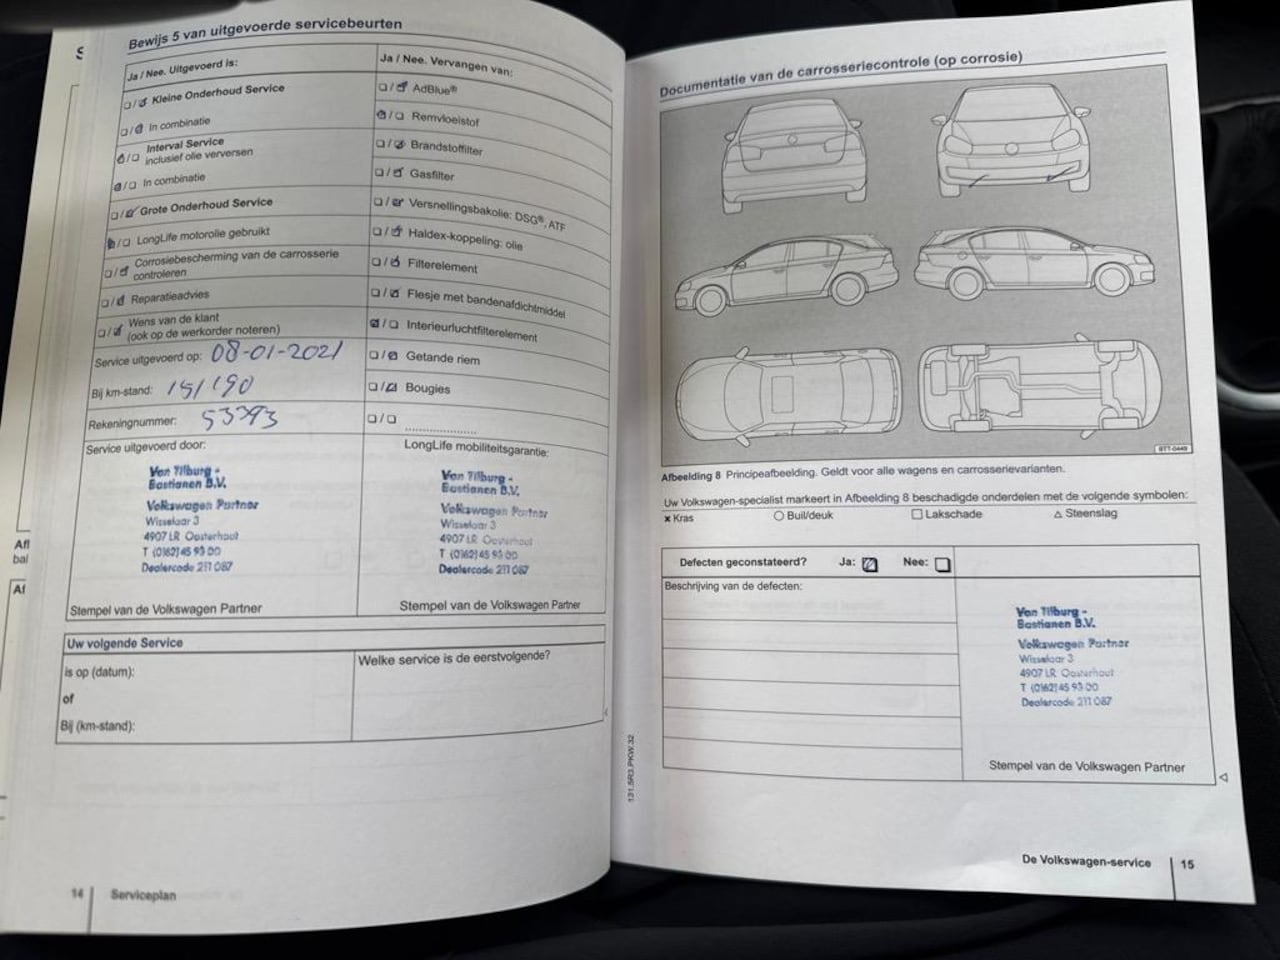 Bewijs 5 van uitgevoerde servicebeurten
Ja / Nee. Uitgevoerd is:
Kleine Onderhoud Service
In combinatie
Interval Service
inclusief olie verversen
In combinatie
Grote Onderhoud Service
LongLife motorolie gebruikt
Corrosiebescherming van de carrosserie
controleren
Reparatieadvies
Wens van de klant
(ook op de werkorder noteren)
Service uitgevoerd op: 08-01-2021
Bij km-stand:
Rekeningnummer: 53393
Service uitgevoerd door:
Van Tilburg -
Bastianen B.V.
Volkswagen Partner
Wisselaar 3
4907 LR Oosterhout
T (0162) 45 93 00
Dealercode 211 087
Stempel van de Volkswagen Partner
Ja / Nee. Vervangen van:
AdBlue®
Remvloeistof
Brandstoffilter
Gasfilter
Versnellingsbakolie: DSG®, ATF
Haldex-koppeling: olie
Filterelement
Flesje met bandenafdichtmiddel
Interieurluchtfilterelement
Getande riem
Bougies
LongLife mobiliteitsgarantie:
Van Tilburg -
Bastianen B.V.
Volkswagen Partner
Wisselaar 3
4907 LR Oosterhout
T (0162) 45 93 00
Dealercode 211 087
Stempel van de Volkswagen Partner
Uw volgende Service
is op (datum):
of
Bij (km-stand):
Welke service is de eerstvolgende?
14 Serviceplan
131.5R3.PKW.32
Documentatie van de carrosseriecontrole (op corrosie)
BTT-0449
Afbeelding 8 Principeafbeelding. Geldt voor alle wagens en carrosserievarianten.
Uw Volkswagen-specialist markeert in Afbeelding 8 beschadigde onderdelen met de volgende symbolen:
× Kras ○ Buil/deuk □ Lakschade △ Steenslag
Defecten geconstateerd? Ja: Nee:
Beschrijving van de defecten:
Van Tilburg -
Bastianen B.V.
Volkswagen Partner
Wisselaar 3
4907 LR Oosterhout
T (0162) 45 93 00
Dealercode 211 087
Stempel van de Volkswagen Partner
De Volkswagen-service 15